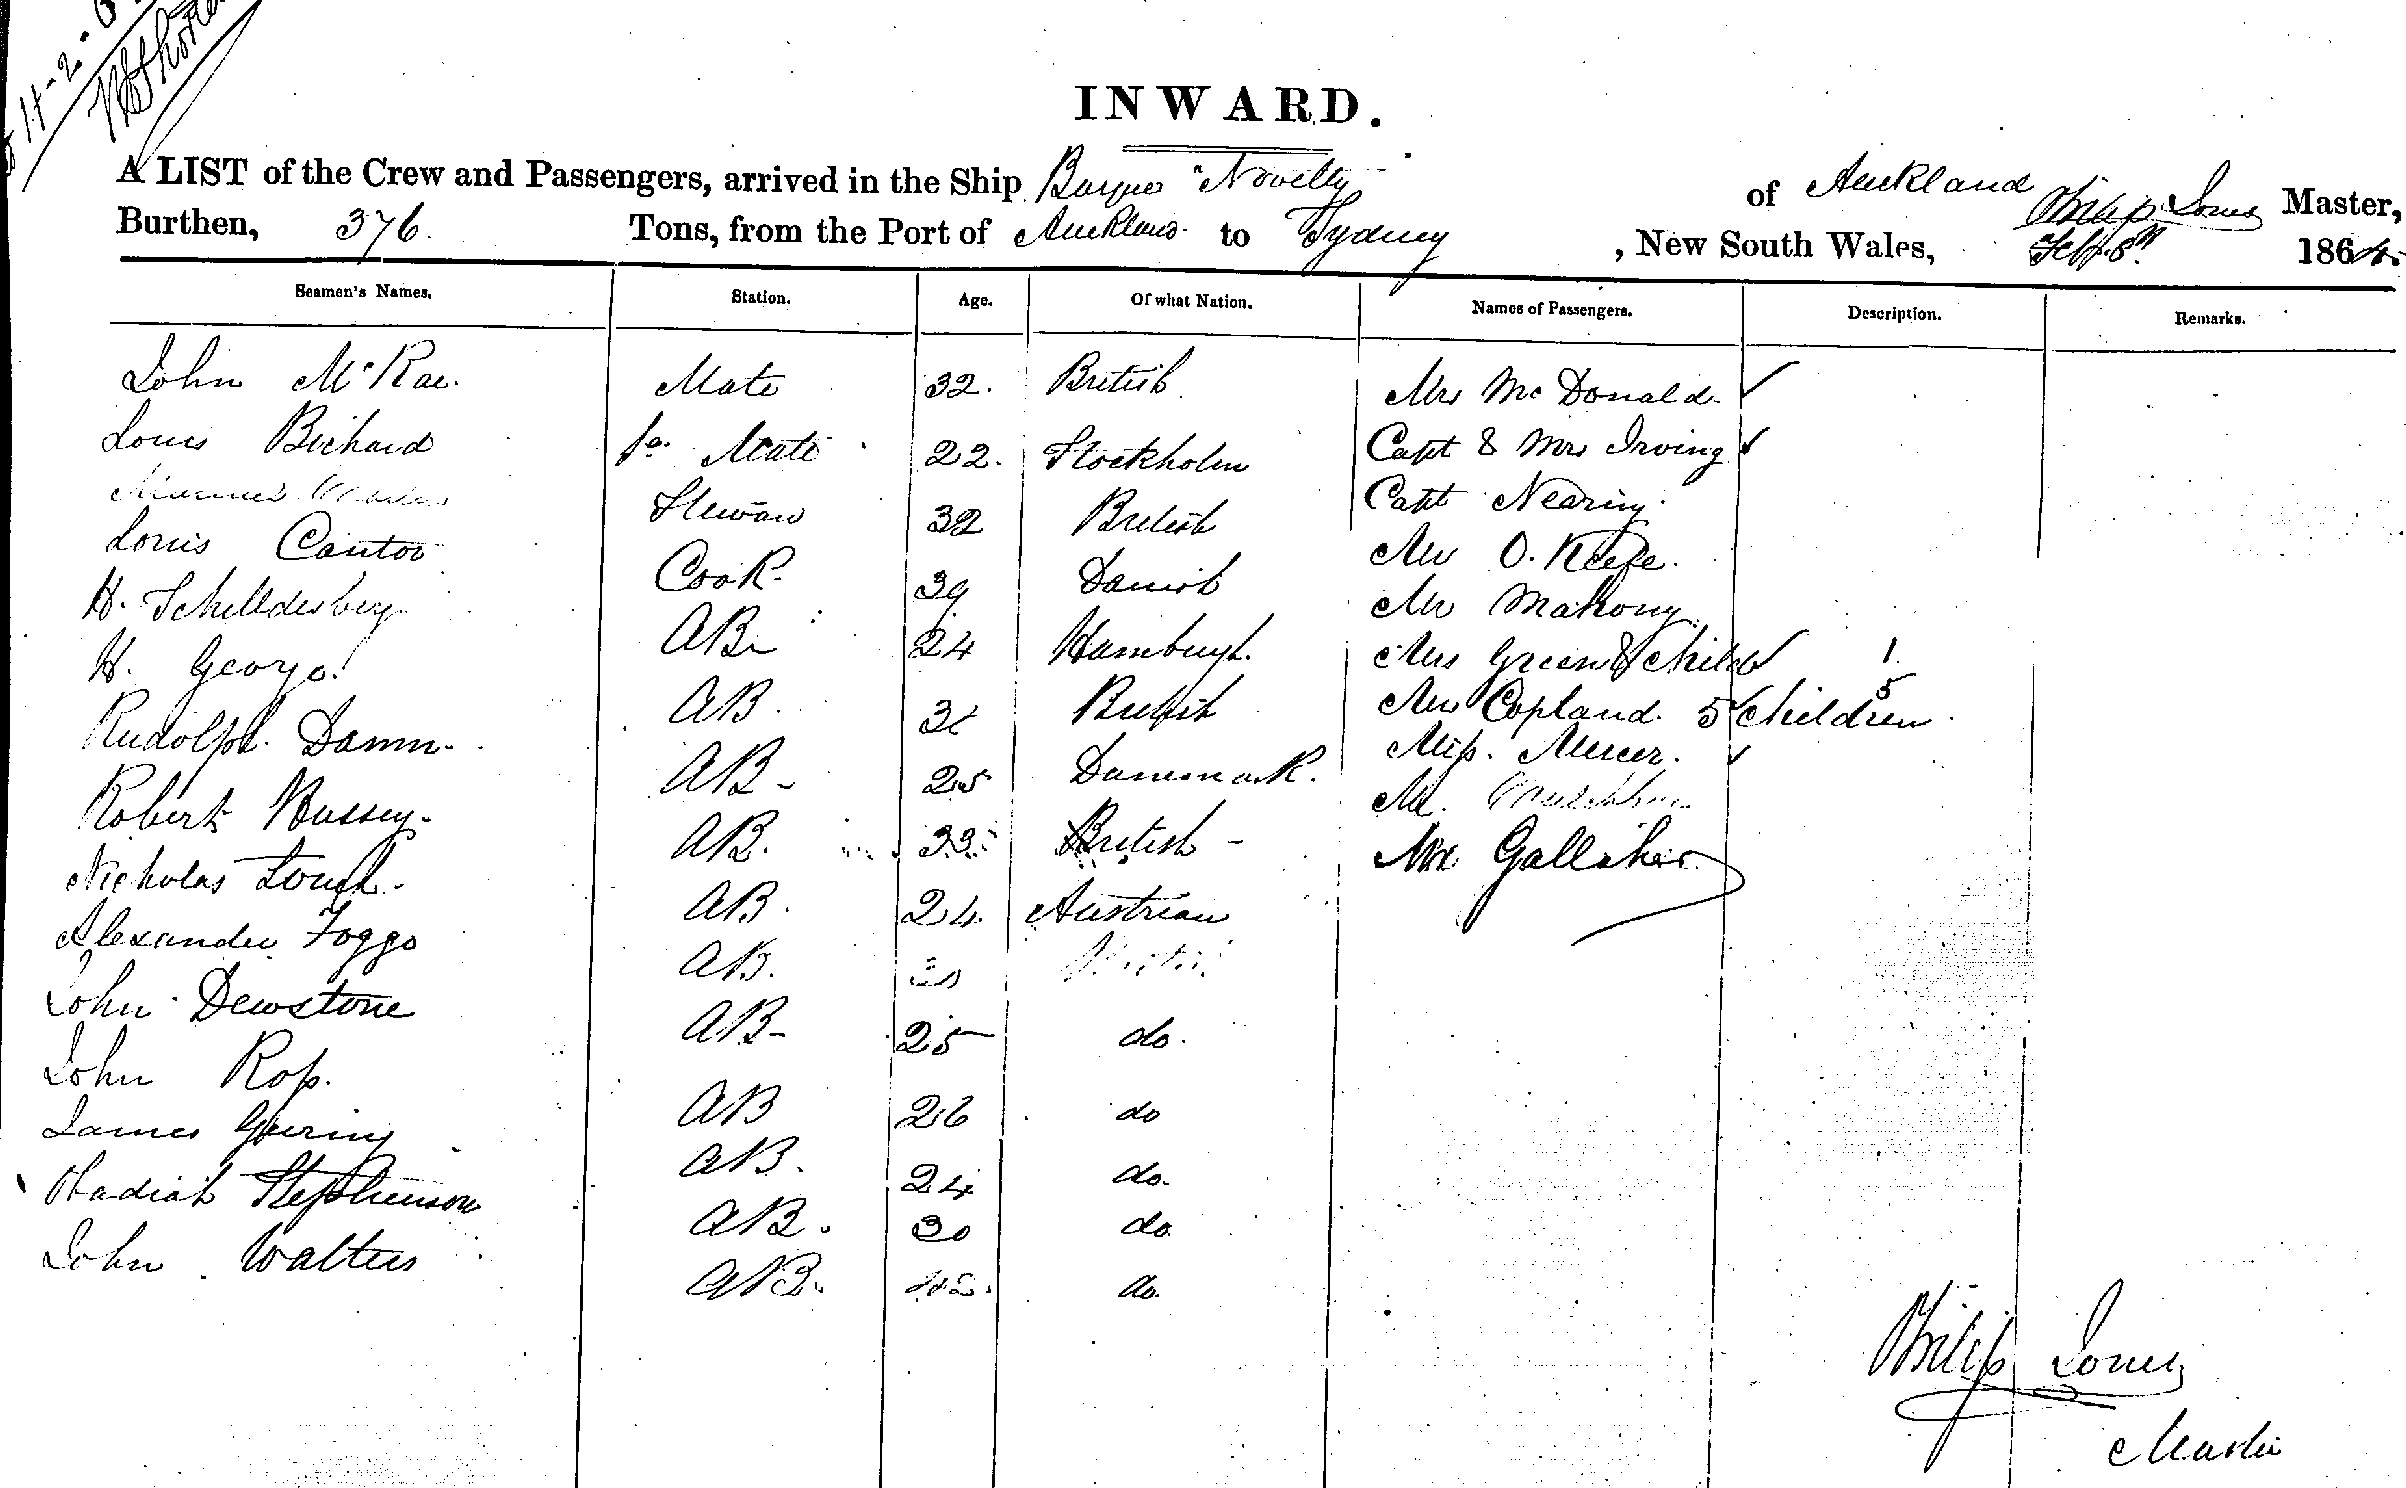 11-2-6
INWARD.
A LIST of the Crew and Passengers, arrived in the Ship Barque "Novelty" of Auckland Philip Jones Master,
Burthen, 376. Tons, from the Port of Auckland to Sydney, New South Wales, Feby. 8th 1864.
Seamen's Names. Station. Age. Of what Nation. Names of Passengers. Description. Remarks.
John McRae. Mate 32. British Mrs McDonald.
Louis Bichard Mate 22. Stockholm Capt & Mrs Irving
Steward 32 British Capt Nearing
Louis Cantoo Cook 39 Danish Mr O. Keefe.
H. Schilldesberg AB 24 Hamburgh. Mr Mahony
H. George. AB 31 British Mrs Green & Child 1
Rudolph Damm. AB 25 Danemark. Mrs Copland. 5 Children 5
Robert Hussey. AB. 33 British Miss. Mercer.
Nicholas AB 24 Austrian Mr.
Alexander Foggo AB. Mr Gallaher
John Dewstone AB 25 do.
John Ross. AB 26 do
James Goering AB. 24 do.
Obadiah Stephenson AB. 30 do.
John Walters AB. 42. do.
Philip Jones
Master